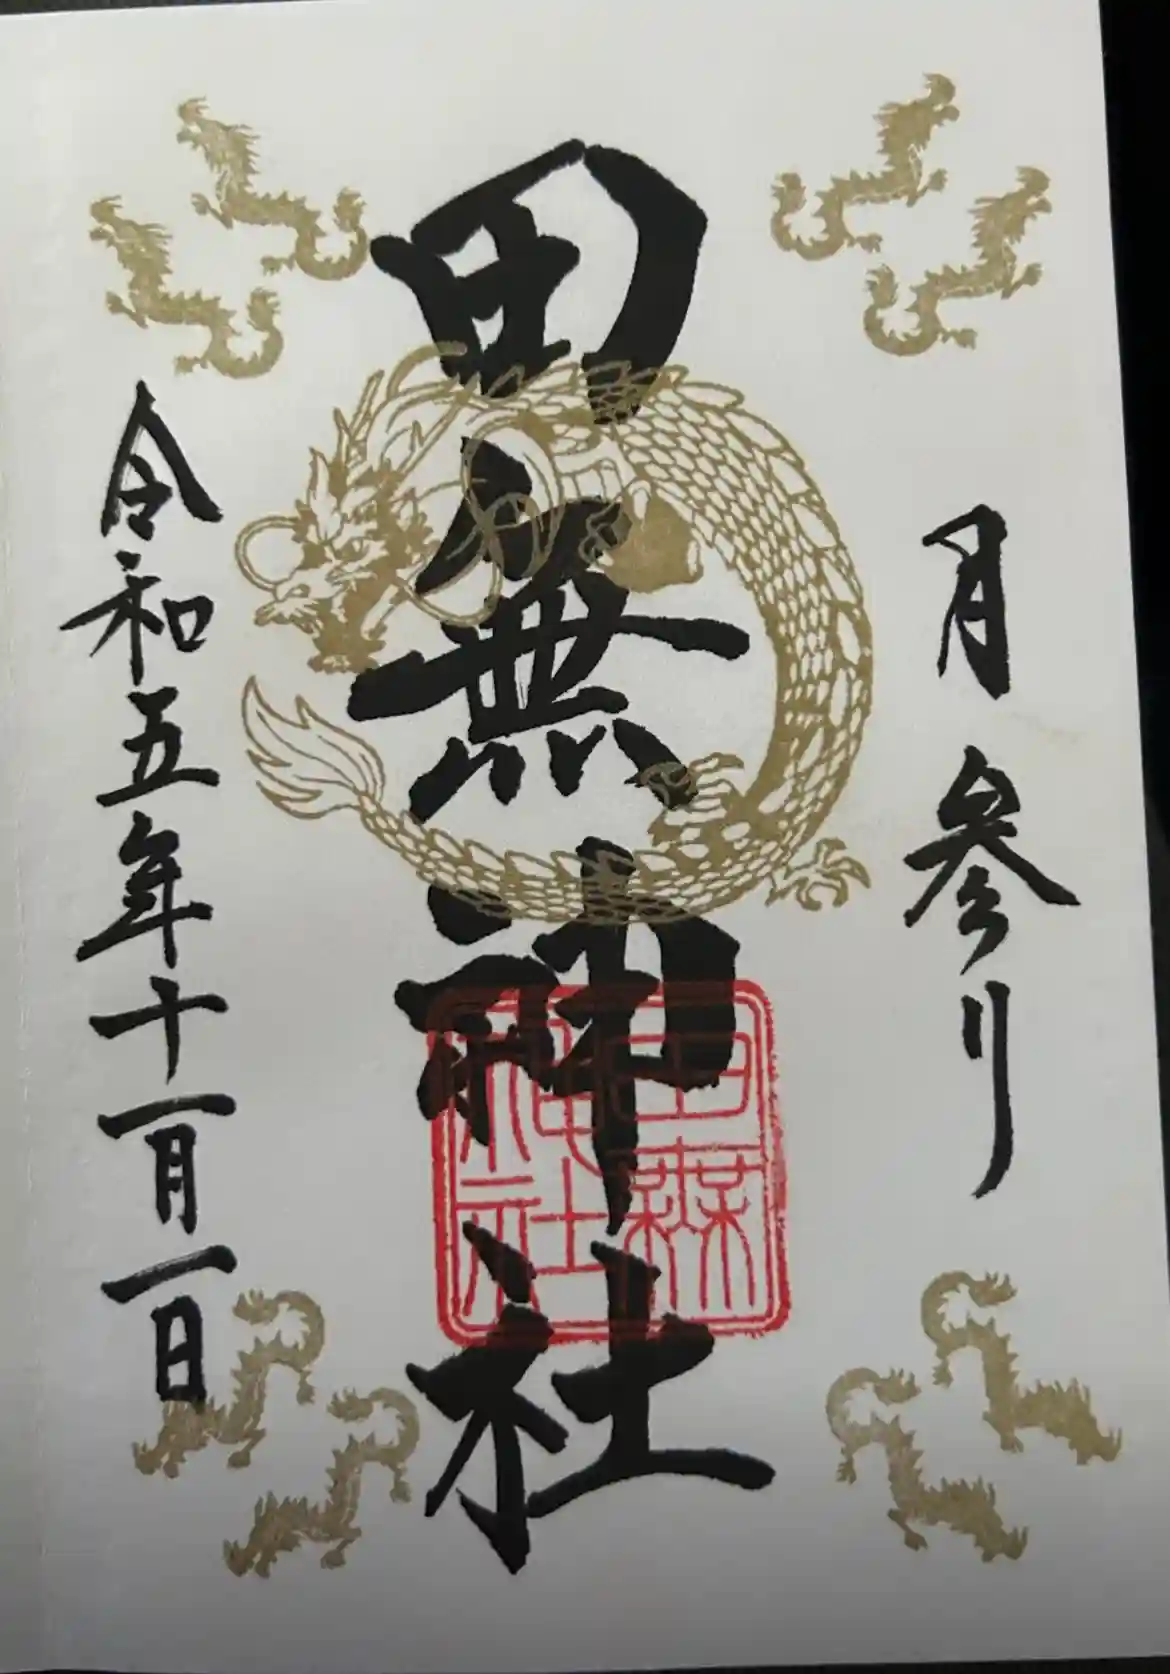 月参り
田無神社
田無神社
令和五年十一月一日